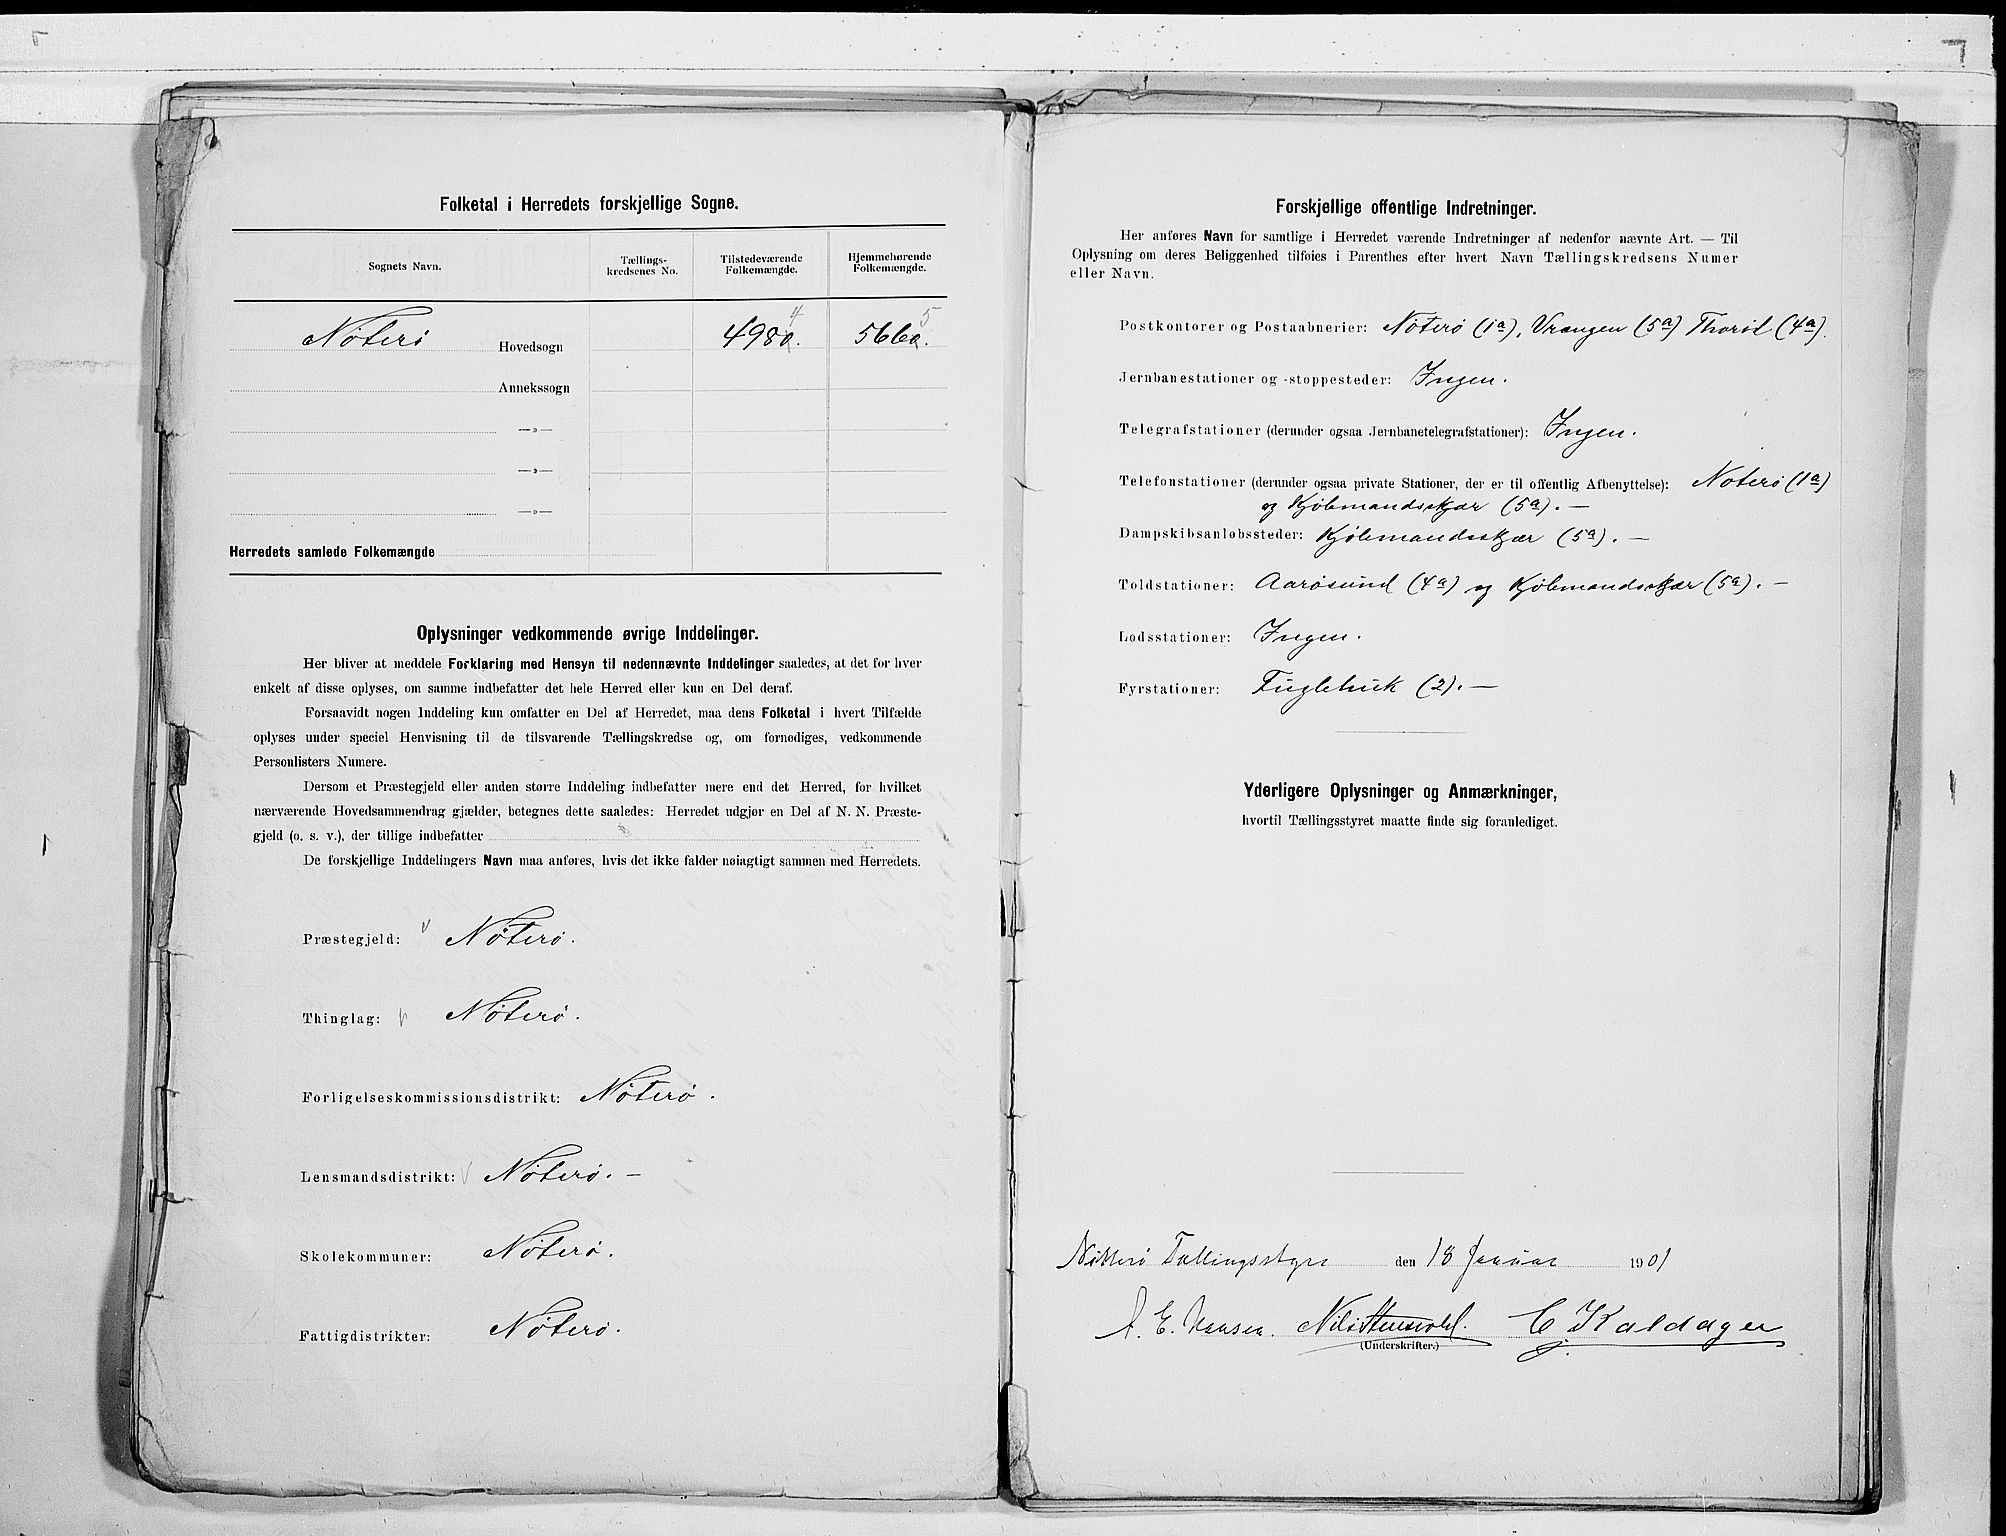 Folketal i Herredets forskjellige Sogne.
Sognets Navn.
Tællings-
kredsenes No.
Tilstedeværende
Folkemængde.
Hjemmehørende
Folkemængde.
4
5
Nøterø Hovedsogn 4980. 5660.
Annekssogn
—»—
—»—
—»—
Herredets samlede Folkemængde
Oplysninger vedkommende øvrige Inddelinger.
Her bliver at meddele Forklaring med Hensyn til nedennævnte Inddelinger saaledes, at det for hver
enkelt af disse oplyses, om samme indbefatter det hele Herred eller kun en Del deraf.
Forsaavidt nogen Inddeling kun omfatter en Del af Herredet, maa dens Folketal i hvert Tilfælde
oplyses under speciel Henvisning til de tilsvarende Tællingskredse og, om fornødiges, vedkommende
Personlisters Numere.
Dersom et Præstegjeld eller anden større Inddeling indbefatter mere end det Herred, for hvilket
nærværende Hovedsammendrag gjælder, betegnes dette saaledes: Herredet udgjør en Del af N. N. Præste-
gjeld (o. s. v.), der tillige indbefatter
De forskjellige Inddelingers Navn maa anføres, hvis det ikke falder nøiagtigt sammen med Herredets.
Præstegjeld: v Nøterø.
Thinglag: v Nøterø.
Forligelseskommissionsdistrikt: Nøterø.
Lensmandsdistrikt: v Nøterø. —
Skolekommuner: Nøterø.
Fattigdistrikter: Nøterø.
Forskjellige offentlige Indretninger.
Her anføres Navn for samtlige i Herredet værende Indretninger af nedenfor nævnte Art. — Til
Oplysning om deres Beliggenhed tilføies i Parenthes efter hvert Navn Tællingskredsens Numer
eller Navn.
Postkontorer og Postaabnerier: Nøterø (1a), Vrængen (5a) Thorød (4a).
Jernbanestationer og -stoppesteder: Ingen.
Telegrafstationer (derunder ogsaa Jernbanetelegrafstationer): Ingen.
Telefonstationer (derunder ogsaa private Stationer, der er til offentlig Afbenyttelse): Nøterø (1a)
og Kjøbmandsskjær (5a). —
Dampskibsanløbssteder: Kjøbmandsskjær (5a). —
Toldstationer: Aarøsund (4a) og Kjøbmandsskjær (5a). —
Lodsstationer: Ingen.
Fyrstationer: Fuglehuk (2). —
Yderligere Oplysninger og Anmærkninger,
hvortil Tællingsstyret maatte finde sig foranlediget.
Nøtterø Tællingsstyre den 18 Januar 1901
A. E. Hansen. C. Kaldager
(Underskrifter.)